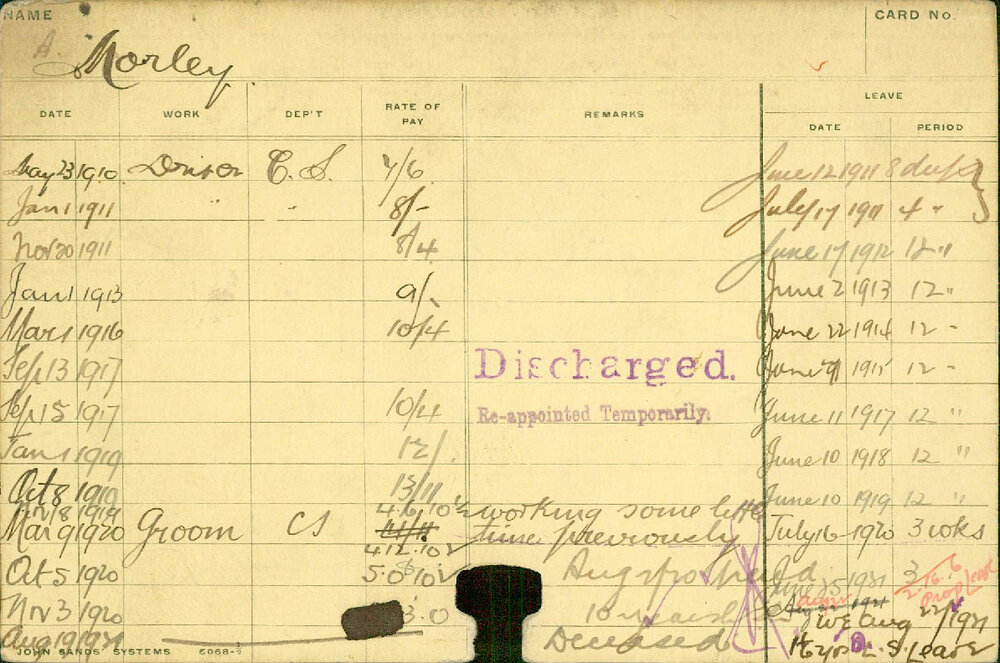 NAME
CARD No.
A. Morley
LEAVE
DATE WORK DEP'T RATE OF PAY REMARKS DATE PERIOD
May 23 1910 Driver C.S. 7/6 June 12 1911 8 days
Jan 1 1911 " " 8/- July 17 1911 4 "
Nov 20 1911 8/4 June 17 1912 12 "
Jan 1 1913 9/- June 2 1913 12 "
Mar 1 1916 10/4 June 22 1914 12 "
Sep 13 1917 Discharged. June 1915 12 "
Sep 15 1917 10/4 Re-appointed Temporarily. June 11 1917 12 "
Jan 1 1919 12/- June 10 1918 12 "
Oct 8 1919 13/11 June 10 1919 12 "
Nov 18 1919 working some little
Mar 9 1920 Groom CS time previously July 16 1920 3 wks
Oct 5 1920 1921 3
Nov 3 1920 3.0 W E Aug 1921
Aug 19 1921 Deceased L. S. Leave
JOHN SANDS' SYSTEMS 6068-